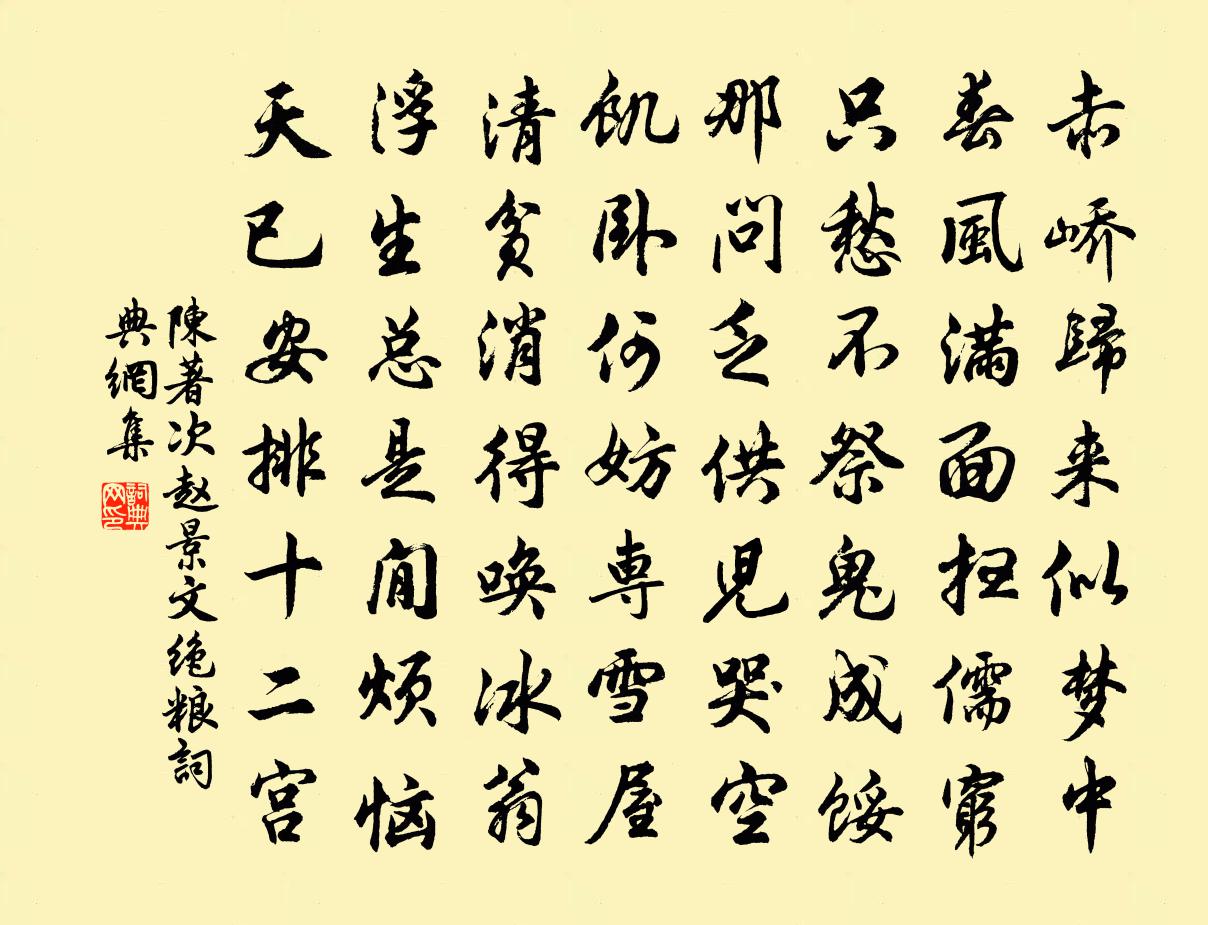 赤峤歸来似梦中
春風满面抂儒窮
只愁不祭鬼成馁
那问乏供児哭空
飢卧何妨専雪屋
清貧消得唤冰翁
浮生总是闲烦恼
天已安排十二宫
陳著次赵景文绝粮詞
典網集
詞典网印